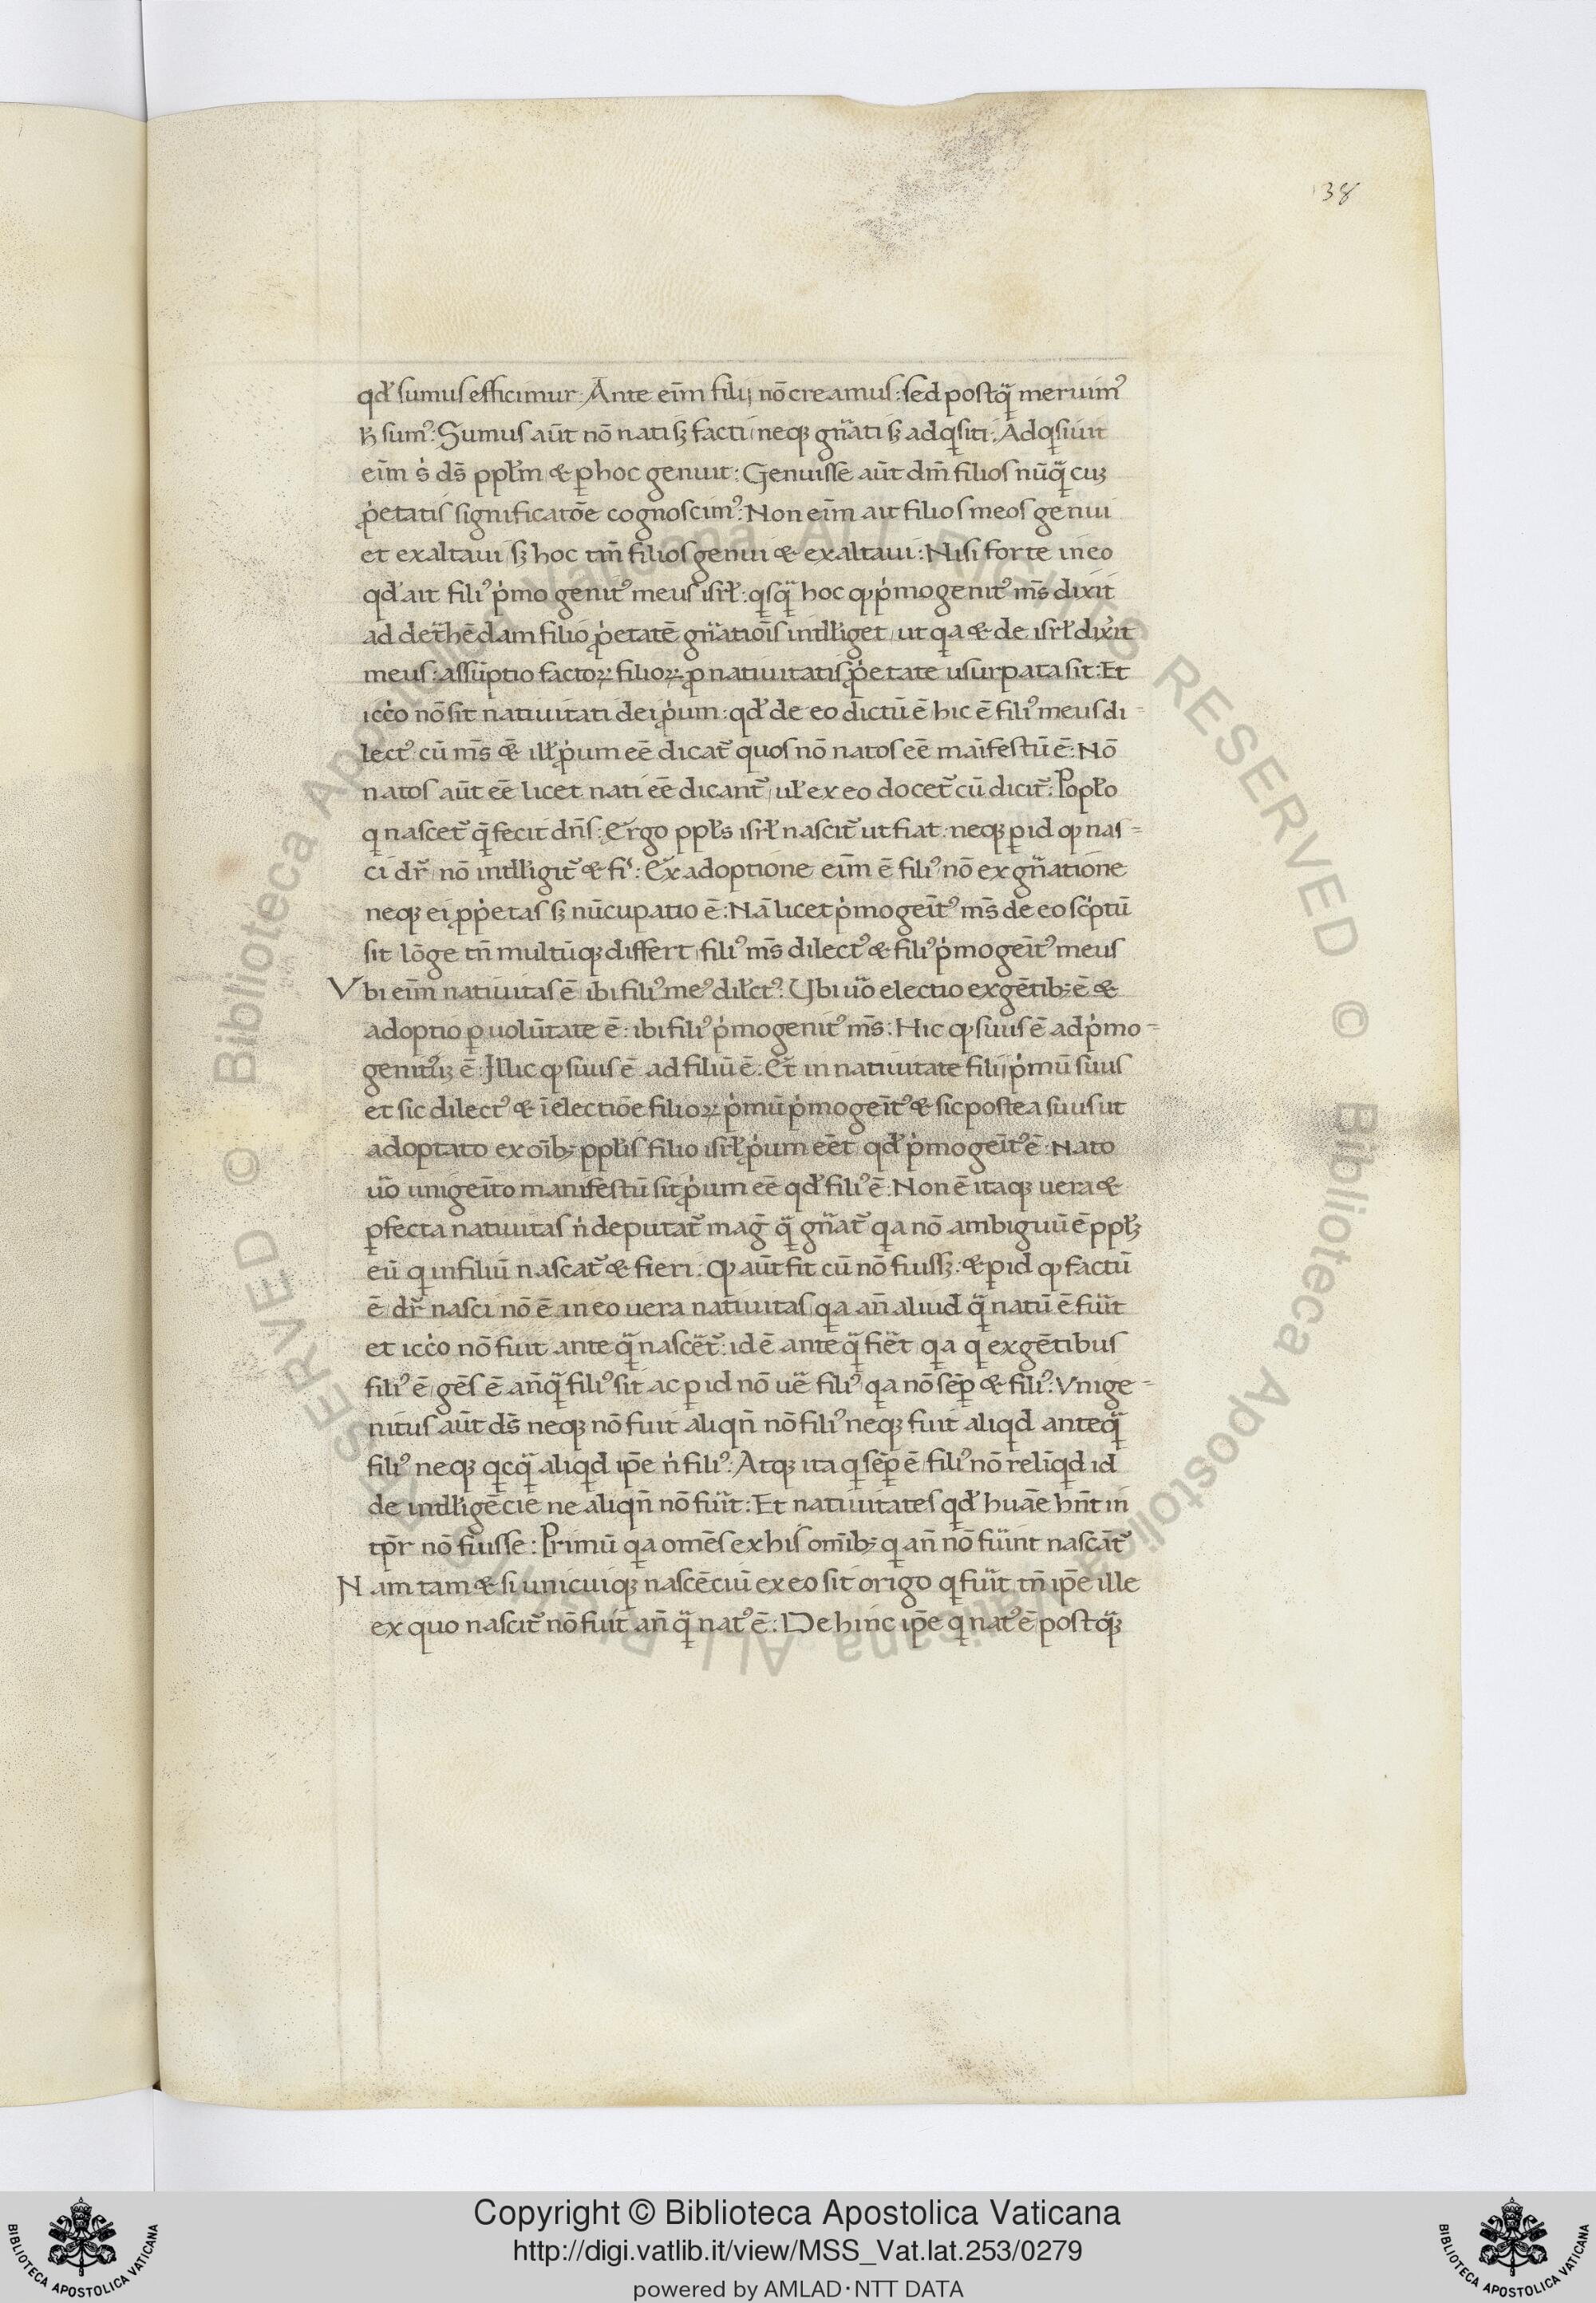 138
qđ sumus efficimur: Ante eīm filij nō creamus: sed postq̄ meruimꝰ
h̵ sumꝰ: Sumus aūt nō nati sꝫ facti neqꝫ gn̄ati sꝫ adqsiti: Adqsiuit
eīm s̓ ds̄ ppłm & ꝑ hoc genuit: Genuisse aūt dm̄ filios nūq̄ cuꝫ
ꝓetatis significatōe cognoscimꝰ: Non eīm ait filios meos genui
et exaltaui sꝫ hoc tm̄ filios genui & exaltaui: Nisi forte in eo
qđ ait filiꝰ pͥmo genitꝰ meus isrł: qsq̄ hoc ꝙ pͥmogenitꝰ ms̄ dixit
ad det̄hēdam filio ꝓetatē gn̄atiōis intłliget ut qa & de isrł dix̓it
meus: assūptio factoꝝ filioꝝ ꝓ natiuitatis ꝓetate usurpata sit: Et
icc̓o nō sit natiuitati dei ꝓum: qđ de eo dictū ē hic ē filiꝰ meus di=
lectꝰ cū ms̄ & ił ꝓum eē dicat̄ quos nō natos eē maīfestū ē: Nō
natos aūt eē licet nati eē dicant̄ uł ex eo docet̄ cū dicit̄: Popło
q nascet̄ q̄ fecit dn̄s: Ergo ppłs isrł nascit̄ ut fiat: neqꝫ ꝑ id ꝙ nas=
ci dr̄ nō intłligit̄ & fiͥ: Ex adoptione eīm ē filiꝰ nō ex gn̄atione
neqꝫ ei ꝓpͥetas sꝫ nūcupatio ē: Nā licet pͥmogeītꝰ ms̄ de eo scͥptū
sit lōge tn̄ multūqꝫ differt filiꝰ ms̄ dilectꝰ & filiꝰ pͥmogeītꝰ meus
Vbi eīm natiuitas ē ibi filiꝰ meꝰ dilctꝰ: Ubi uo̅ electio ex gētibꝫ ē &
adoptio ꝑ uolūtate ē: ibi filiꝰ pͥmogenitꝰ ms̄: Hic ꝙ suus ē ad pͥmo=
genitūꝫ ē: Illic ꝙ suus ē ad filiū ē: Et̄ in natiuitate filii pͥmū suus
et sic dilectꝰ & ī electiōe filioꝝ pͥmū pͥmogeītꝰ & sic postea suus ut
adoptato ex oīb; ppłis filio isrł ꝓum eēt qđ pͥmogeītꝰ ē: Nato
uo̅ unigeīto manifestū sit ꝓum eē qđ filiꝰ ē: Non ē itaqꝫ uera &
ꝑfecta natiuitas n̓ deputat̄ mag̓ q̄ gn̄at̄ qa nō ambiguū ē ppłꝫ
eū q in filiū nascat̄ & fieri: Ꝙ aūt fit cū nō fuissꝫ: & ꝑ id ꝙ factū
ē dr̄ nasci nō ē in eo uera natiuitas qa an̄ aliud q̄ natū ē fūit
et icc̓o nō fuit ante q̄ nascēt̄: id ē ante q̄ fiēt qa q ex gētibus
filiꝰ ē gēs ē an̄q̄ filiꝰ sit ac ꝑ id nō uē filiꝰ qa nō sēꝑ & filiꝰ: Vnige=
nitus aūt ds̄ neqꝫ nō fuit aliqn̄ nō filiꝰ neqꝫ fuit aliqd anteq̄
filiꝰ neqꝫ qcq̄ aliqd ip̄e n̓ filiꝰ: Atqꝫ ita q sēꝑ ē filiꝰ nō reliqd id
de intłligēcie ne aliqn̄ nō fūit: Et natiuitates qđ huāe hn̄t in
tp̄r nō fuisse: Primū qa omēs ex his omīb; q an̄ nō fūint nascāt̄
Nam tam & si unicuiqꝫ nascēciū ex eo sit origo q fūit tn̄ ip̄e ille
ex quo nascit̄ nō fuit an̄ q̄ natꝰ ē: De hinc ip̄e q natꝰ ē postq̄ꝫ
© Biblioteca Apostolica Vaticana ALL RIGHTS RESERVED © Biblioteca Apostolica Vaticana ALL RIGHTS RESERVED
Copyright © Biblioteca Apostolica Vaticana
http://digi.vatlib.it/view/MSS_Vat.lat.253/0279
powered by AMLAD·NTT DATA
BIBLIOTECA APOSTOLICA VATICANA
BIBLIOTECA APOSTOLICA VATICANA